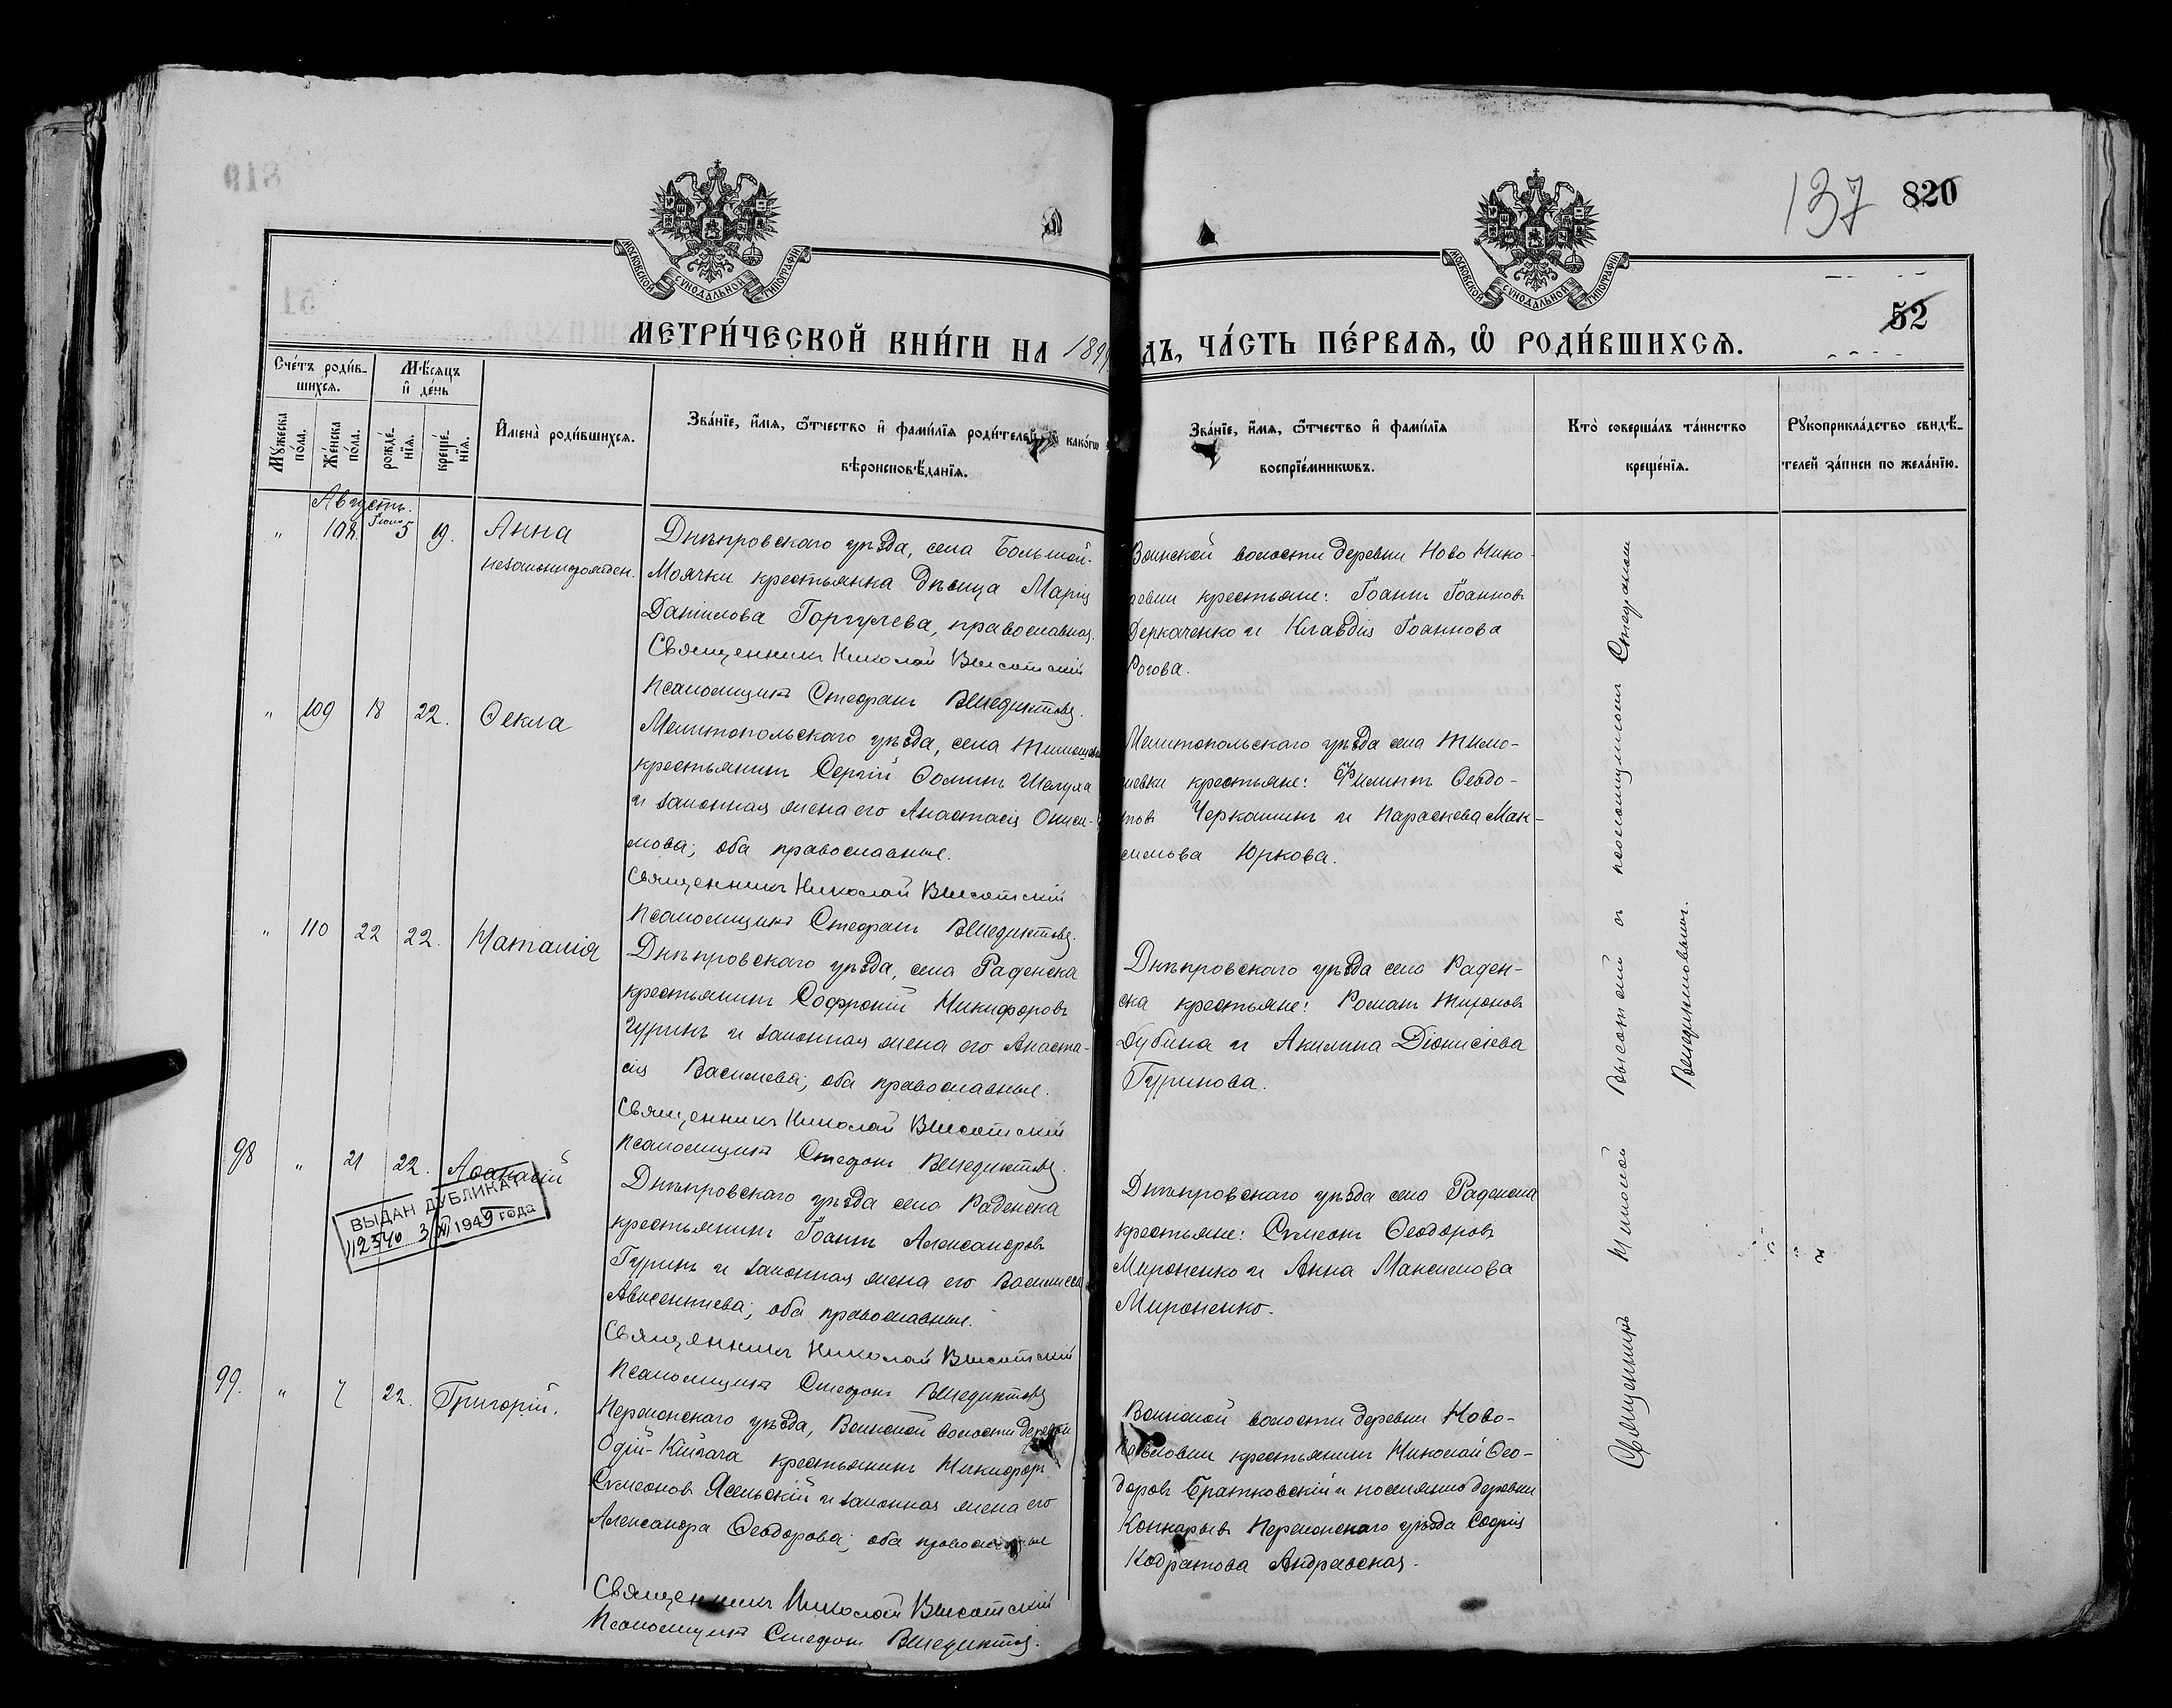 137
820
52
МОСКОВСКОЙ СѴНОДАЛЬНОЙ ТИПОГРАФІИ
МОСКОВСКОЙ СѴНОДАЛЬНОЙ ТИПОГРАФІИ
МЕТРИ́ЧЕСКОЙ КНИ́ГИ НА 1899
ДЪ, ЧА́СТЬ ПЕ́РВАЯ, Ѽ РОДИ́ВШИХСЯ.
Сче́тъ роди́в-
шихся.
Мѣ́сяцъ
и де́нь
Мꙋжеска по́ла.
Же́нска по́ла.
рожде́-
нїя.
креще́-
нїя.
Имена̀ роди́вшихся.
Зва́нїе, и́мя, ѻ҆́тчество и҆ фами́лїя роди́телей, и҆ како́гѡ
вѣроисповѣ́данїя.
Зва́нїе, и́мя, ѻ҆́тчество и҆ фами́лїя
воспрїе́мникѡвъ.
Кто̀ соверша́лъ та́инство
креще́нїя.
Рꙋкоприкла́дство свидѣ́-
телей за́писи по жела́нїю.
Августъ.
" 108. 5 19. Анна
незаконнорожден.
Днѣпровскаго уѣзда, села Большой-
Маячки крестьянка дѣвица Марія
Даніилова Горгулева, православная.
Священникъ Николай Высотскій
Псаломщикъ Стефанъ Венедиктовъ.
Воинской волости деревни Ново Нико-
аевки крестьяне: Іоаннъ Іоанновъ
Деркаченко и Клавдія Іоаннова
Рогова.
" 109 18 22. Ѳекла
Мелитопольскаго уѣзда, села Тимошевки
крестьянинъ Сергій Ѳоминъ Шелуха
и законная жена его Анастасія Ониси-
мова; оба православные.
Священникъ Николай Высотскій
Псаломщикъ Стефанъ Венедиктовъ.
Мелитопольскаго уѣзда села Тимо-
шевки крестьяне: Филиппъ Ѳеодо-
товъ Черкашинъ и Параскева Мак-
симова Юркова.
" 110 22 22. Наталія
Днѣпровскаго уѣзда, села Раденска
крестьянинъ Софроній Никифоровъ
Гуринъ и законная жена его Анаста-
сія Васильева; оба православные.
Священникъ Николай Высотскій
Псаломщикъ Стефанъ Венедиктовъ.
Днѣпровскаго уѣзда села Раден-
ска крестьяне: Романъ Мироновъ
Дубина и Акилина Діонисіева
Гуринова.
98 " 21 22. Аѳанасій
ВЫДАН ДУБЛИКАТ
112540 3/XI 1949 года
Днѣпровскаго уѣзда села Раденска
крестьянинъ Іоаннъ Александровъ
Гуринъ и законная жена его Василисса
Авксентіева; оба православные.
Священникъ Николай Высотскій
Псаломщикъ Стефанъ Венедиктовъ
Днѣпровскаго уѣзда села Раденска
крестьяне: Сѵмеонъ Ѳеодоровъ
Мироненко и Анна Максимова
Мироненко.
99. " 7 22. Григорій.
Перекопскаго уѣзда, Воинской волости деревни
крестьянинъ Никифоръ
Сѵмеоновъ Ясельскій и законная жена его
Александра Ѳеодорова; оба православные
Священникъ Николай Высотскій
Псаломщикъ Стефанъ Венедиктовъ.
Воинской волости деревни Ново-
Павловки крестьянинъ Николай Ѳео-
доровъ Братковскій и поселянка деревни
Перекопскаго уѣзда Софія
Кодратова
Священникъ Николай Высотскій съ псаломщикомъ Стефаномъ
Венедиктовымъ.